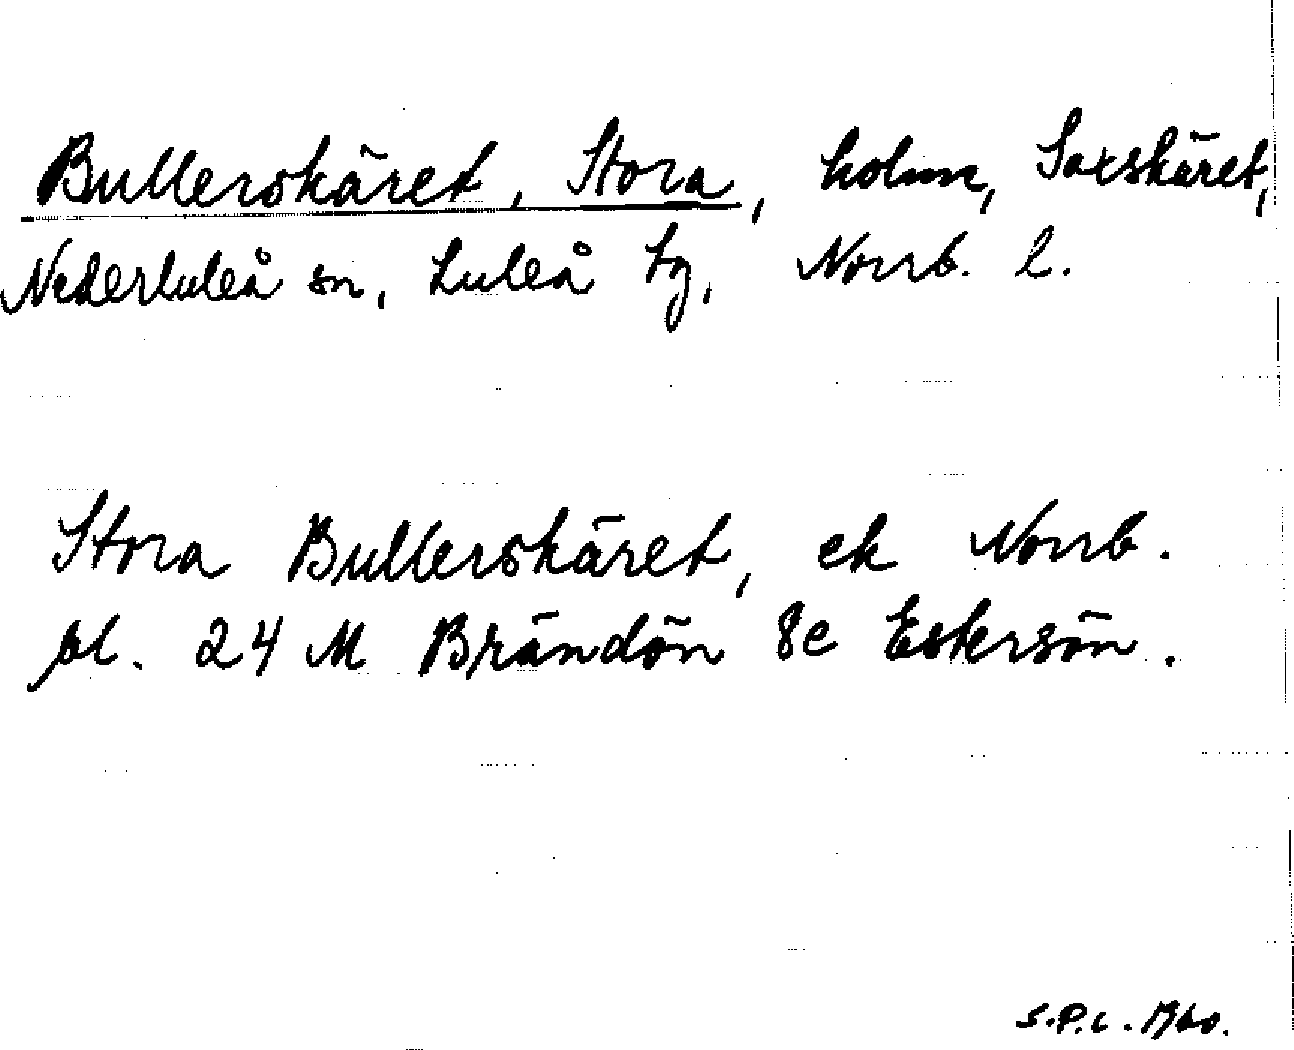 Bullerskäret, Stora, holme, Saxskäret,
Nederluleå sn, Luleå tg, Norrb. l.
Stora Bullerskäret, ek Norrb.
bl. 24 M Brändön 8c Eskersön.
S.P.C. 1960.